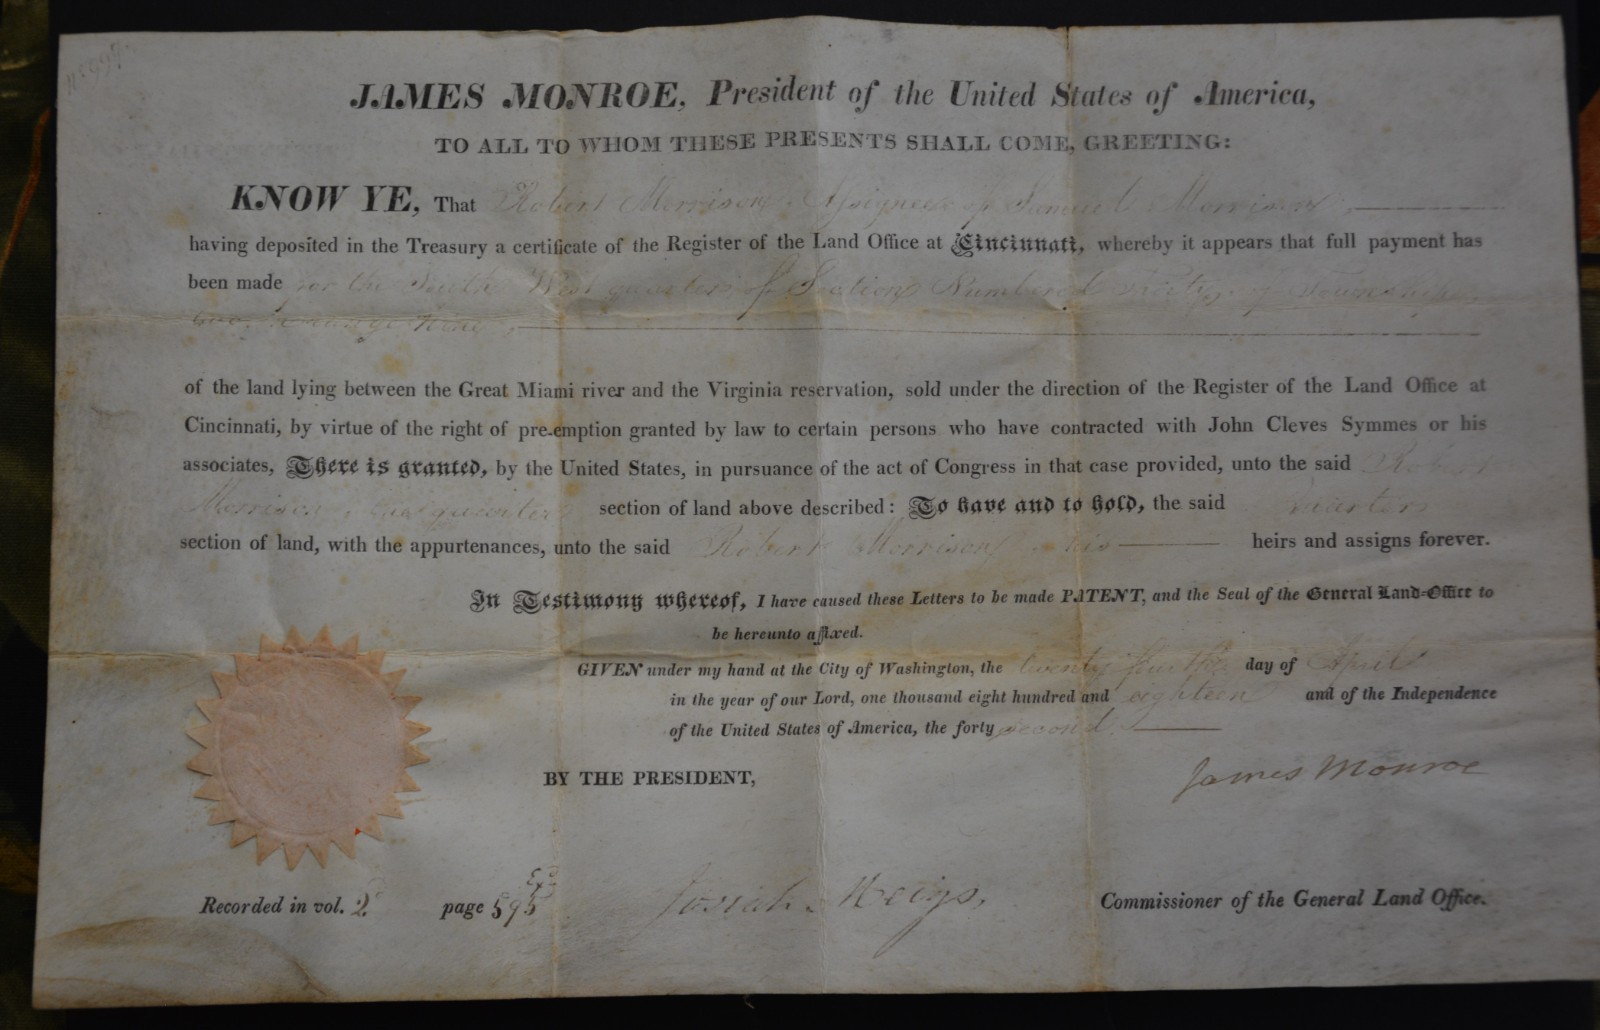 JAMES MONROE, President of the United States of America,
TO ALL TO WHOM THESE PRESENTS SHALL COME, GREETING:
KNOW YE, That Robert Morrison Assignee of Samuel Morrison,
having deposited in the Treasury a certificate of the Register of the Land Office at Cincinnati, whereby it appears that full payment has
been made for the South West quarter of Section Numbered of Township
two, in range nine,
of the land lying between the Great Miami river and the Virginia reservation, sold under the direction of the Register of the Land Office at
Cincinnati, by virtue of the right of pre-emption granted by law to certain persons who have contracted with John Cleves Symmes or his
associates, There is granted, by the United States, in pursuance of the act of Congress in that case provided, unto the said Robert
Morrison, the quarter section of land above described: To have and to hold, the said quarter
section of land, with the appurtenances, unto the said Robert Morrison his heirs and assigns forever.
In Testimony whereof, I have caused these Letters to be made PATENT, and the Seal of the General Land-Office to
be hereunto affixed.
GIVEN under my hand at the City of Washington, the twenty fourth day of April
in the year of our Lord, one thousand eight hundred and eighteen and of the Independence
of the United States of America, the forty second.
James Monroe
BY THE PRESIDENT,
Josiah Meigs, Commissioner of the General Land Office.
Recorded in vol. 2 page 595